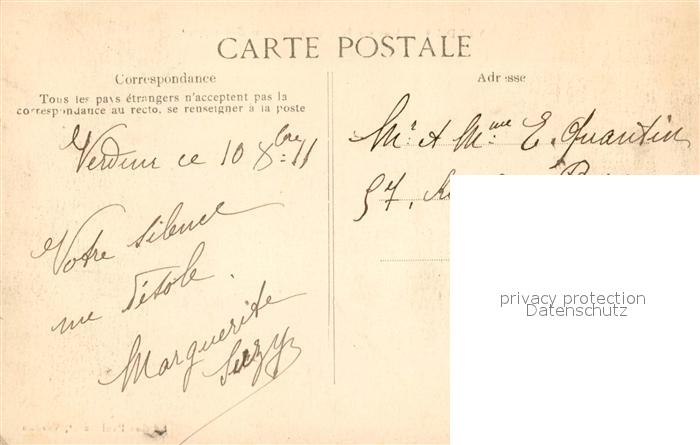 CARTE POSTALE
Correspondance
Tous les pays étrangers n'acceptent pas la
correspondance au recto, se renseigner à la poste
Adresse
Verdun ce 10 8bre 11
Votre silence
me désole.
Marguerite
Suzy
Mr. et Mme E. Quantin
57, 
privacy protection
Datenschutz